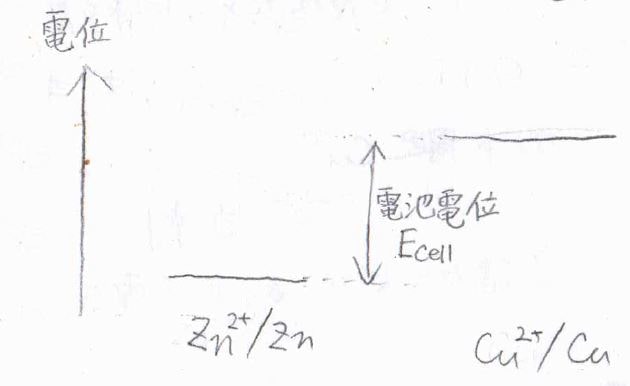 電位
電池電位
Ecell
Zn²⁺/Zn
Cu²⁺/Cu